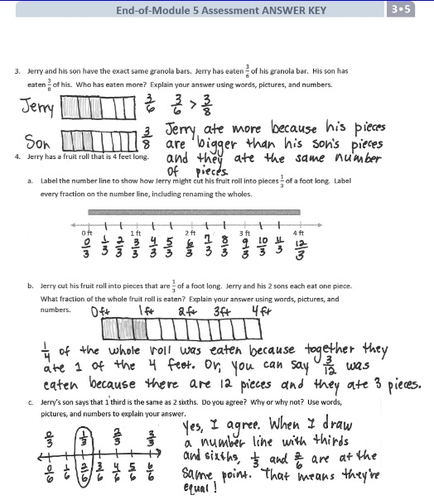 End-of-Module 5 Assessment ANSWER KEY 3•5
3. Jerry and his son have the exact same granola bars. Jerry has eaten 3/6 of his granola bar. His son has
eaten 3/8 of his. Who has eaten more? Explain your answer using words, pictures, and numbers.
Jerry 3/6 3/6 > 3/8
Son 3/8 Jerry ate more because his pieces
are bigger than his son's pieces
and they ate the same number
of pieces.
4. Jerry has a fruit roll that is 4 feet long.
a. Label the number line to show how Jerry might cut his fruit roll into pieces 1/3 of a foot long. Label
every fraction on the number line, including renaming the wholes.
0 ft 1 ft 2 ft 3 ft 4 ft
0/3 1/3 2/3 3/3 4/3 5/3 6/3 7/3 8/3 9/3 10/3 11/3 12/3
b. Jerry cut his fruit roll into pieces that are 1/3 of a foot long. Jerry and his 2 sons each eat one piece.
What fraction of the whole fruit roll is eaten? Explain your answer using words, pictures, and
numbers.
0ft 1ft 2ft 3ft 4ft
1/4 of the whole roll was eaten because together they
ate 1 of the 4 feet. Or, you can say 3/12 was
eaten because there are 12 pieces and they ate 3 pieces.
c. Jerry's son says that 1 third is the same as 2 sixths. Do you agree? Why or why not? Use words,
pictures, and numbers to explain your answer.
0/3 1/3 2/3 3/3
0/6 1/6 2/6 3/6 4/6 5/6 6/6
Yes, I agree. When I draw
a number line with thirds
and sixths, 1/3 and 2/6 are at the
same point. That means they're
equal!